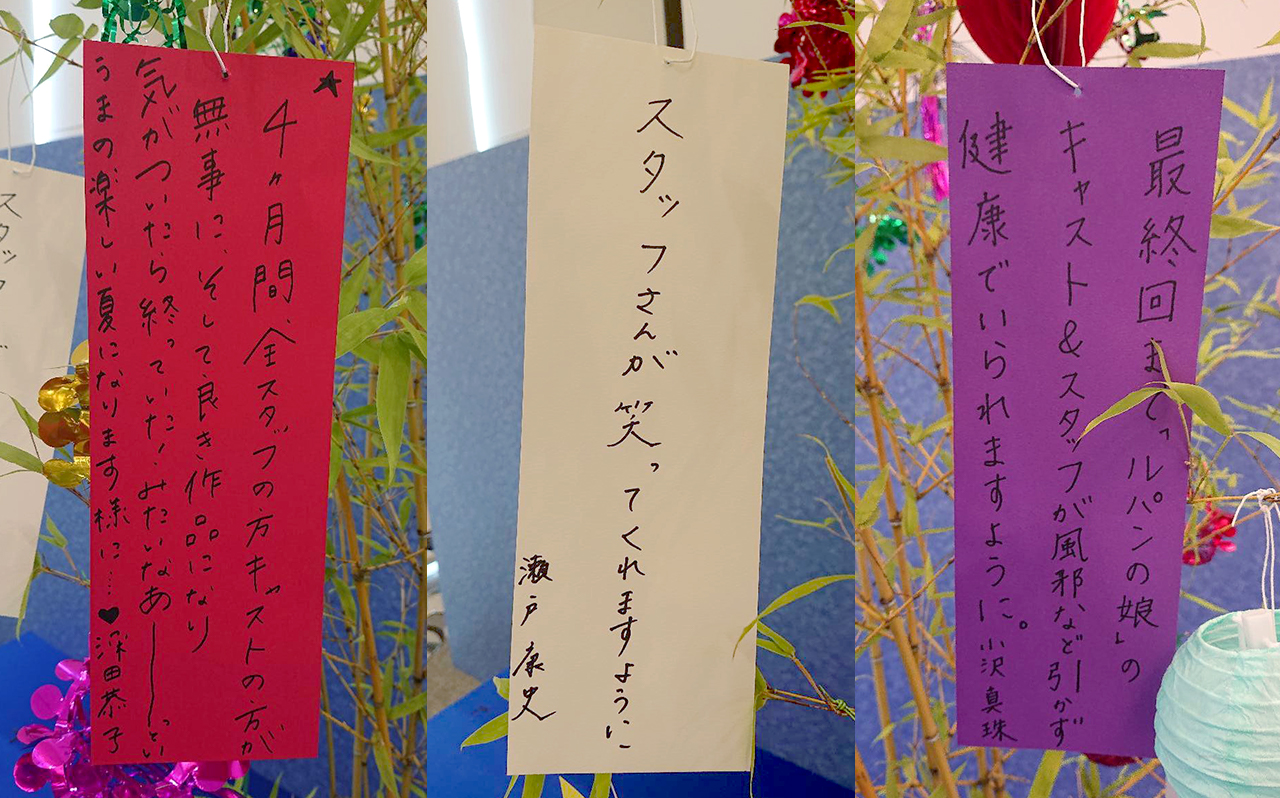 ★
4ヶ月間、全スタッフの方キャストの方が
無事に、そして良き作品になり
気がついたら終っていた!みたいなあーーっとい
うまの楽しい夏になります様に…♥深田恭子
スタッフさんが笑ってくれますように
瀬戸康史
最終回まで「ルパンの娘」の
キャスト&スタッフが風邪など引かず
健康でいられますように。小沢真珠
スタッフ